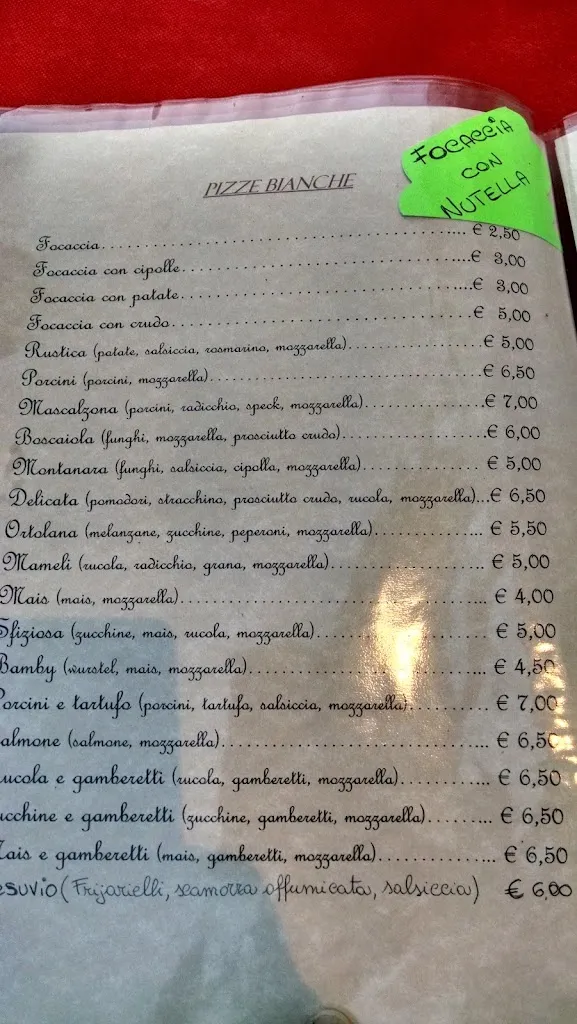 PIZZE BIANCHE
FOCACCIA
CON
NUTELLA
Focaccia....................................................... € 2,50
Focaccia con cipolle.......................................€ 3,00
Focaccia con patate........................................€ 3,00
Focaccia con crudo......................................... € 5,00
Rustica (patate, salsiccia, rosmarino, mozzarella)....................€ 5,00
Porcini (porcini, mozzarella)........................................€ 6,50
Mascalzona (porcini, radicchio, speck, mozzarella)..................€ 7,00
Boscaiola (funghi, mozzarella, prosciutto crudo).....................€ 6,00
Montanara (funghi, salsiccia, cipolla, mozzarella).................. € 5,00
Delicata (pomodori, stracchino, prosciutto crudo, rucola, mozzarella)...€ 6,50
Ortolana (melanzane, zucchine, peperoni, mozzarella)................ € 5,50
Mameli (rucola, radicchio, grana, mozzarella)....................... € 5,00
Mais (mais, mozzarella)............................................. € 4,00
Sfiziosa (zucchine, mais, rucola, mozzarella)....................... € 5,00
Bamby (wurstel, mais, mozzarella)................................... € 4,50
Porcini e tartufo (porcini, tartufo, salsiccia, mozzarella)........... € 7,00
almone (salmone, mozzarella)........................................ € 6,50
ucola e gamberetti (rucola, gamberetti, mozzarella)................. € 6,50
ucchine e gamberetti (zucchine, gamberetti, mozzarella)............. € 6,50
Mais e gamberetti (mais, gamberetti, mozzarella).................... € 6,50
esuvio (Frijarielli, scamorza affumicata, salsiccia) € 6,00